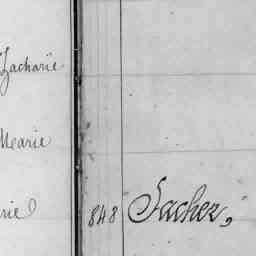 Zacharie
Mearie
rie
848 Sacher,